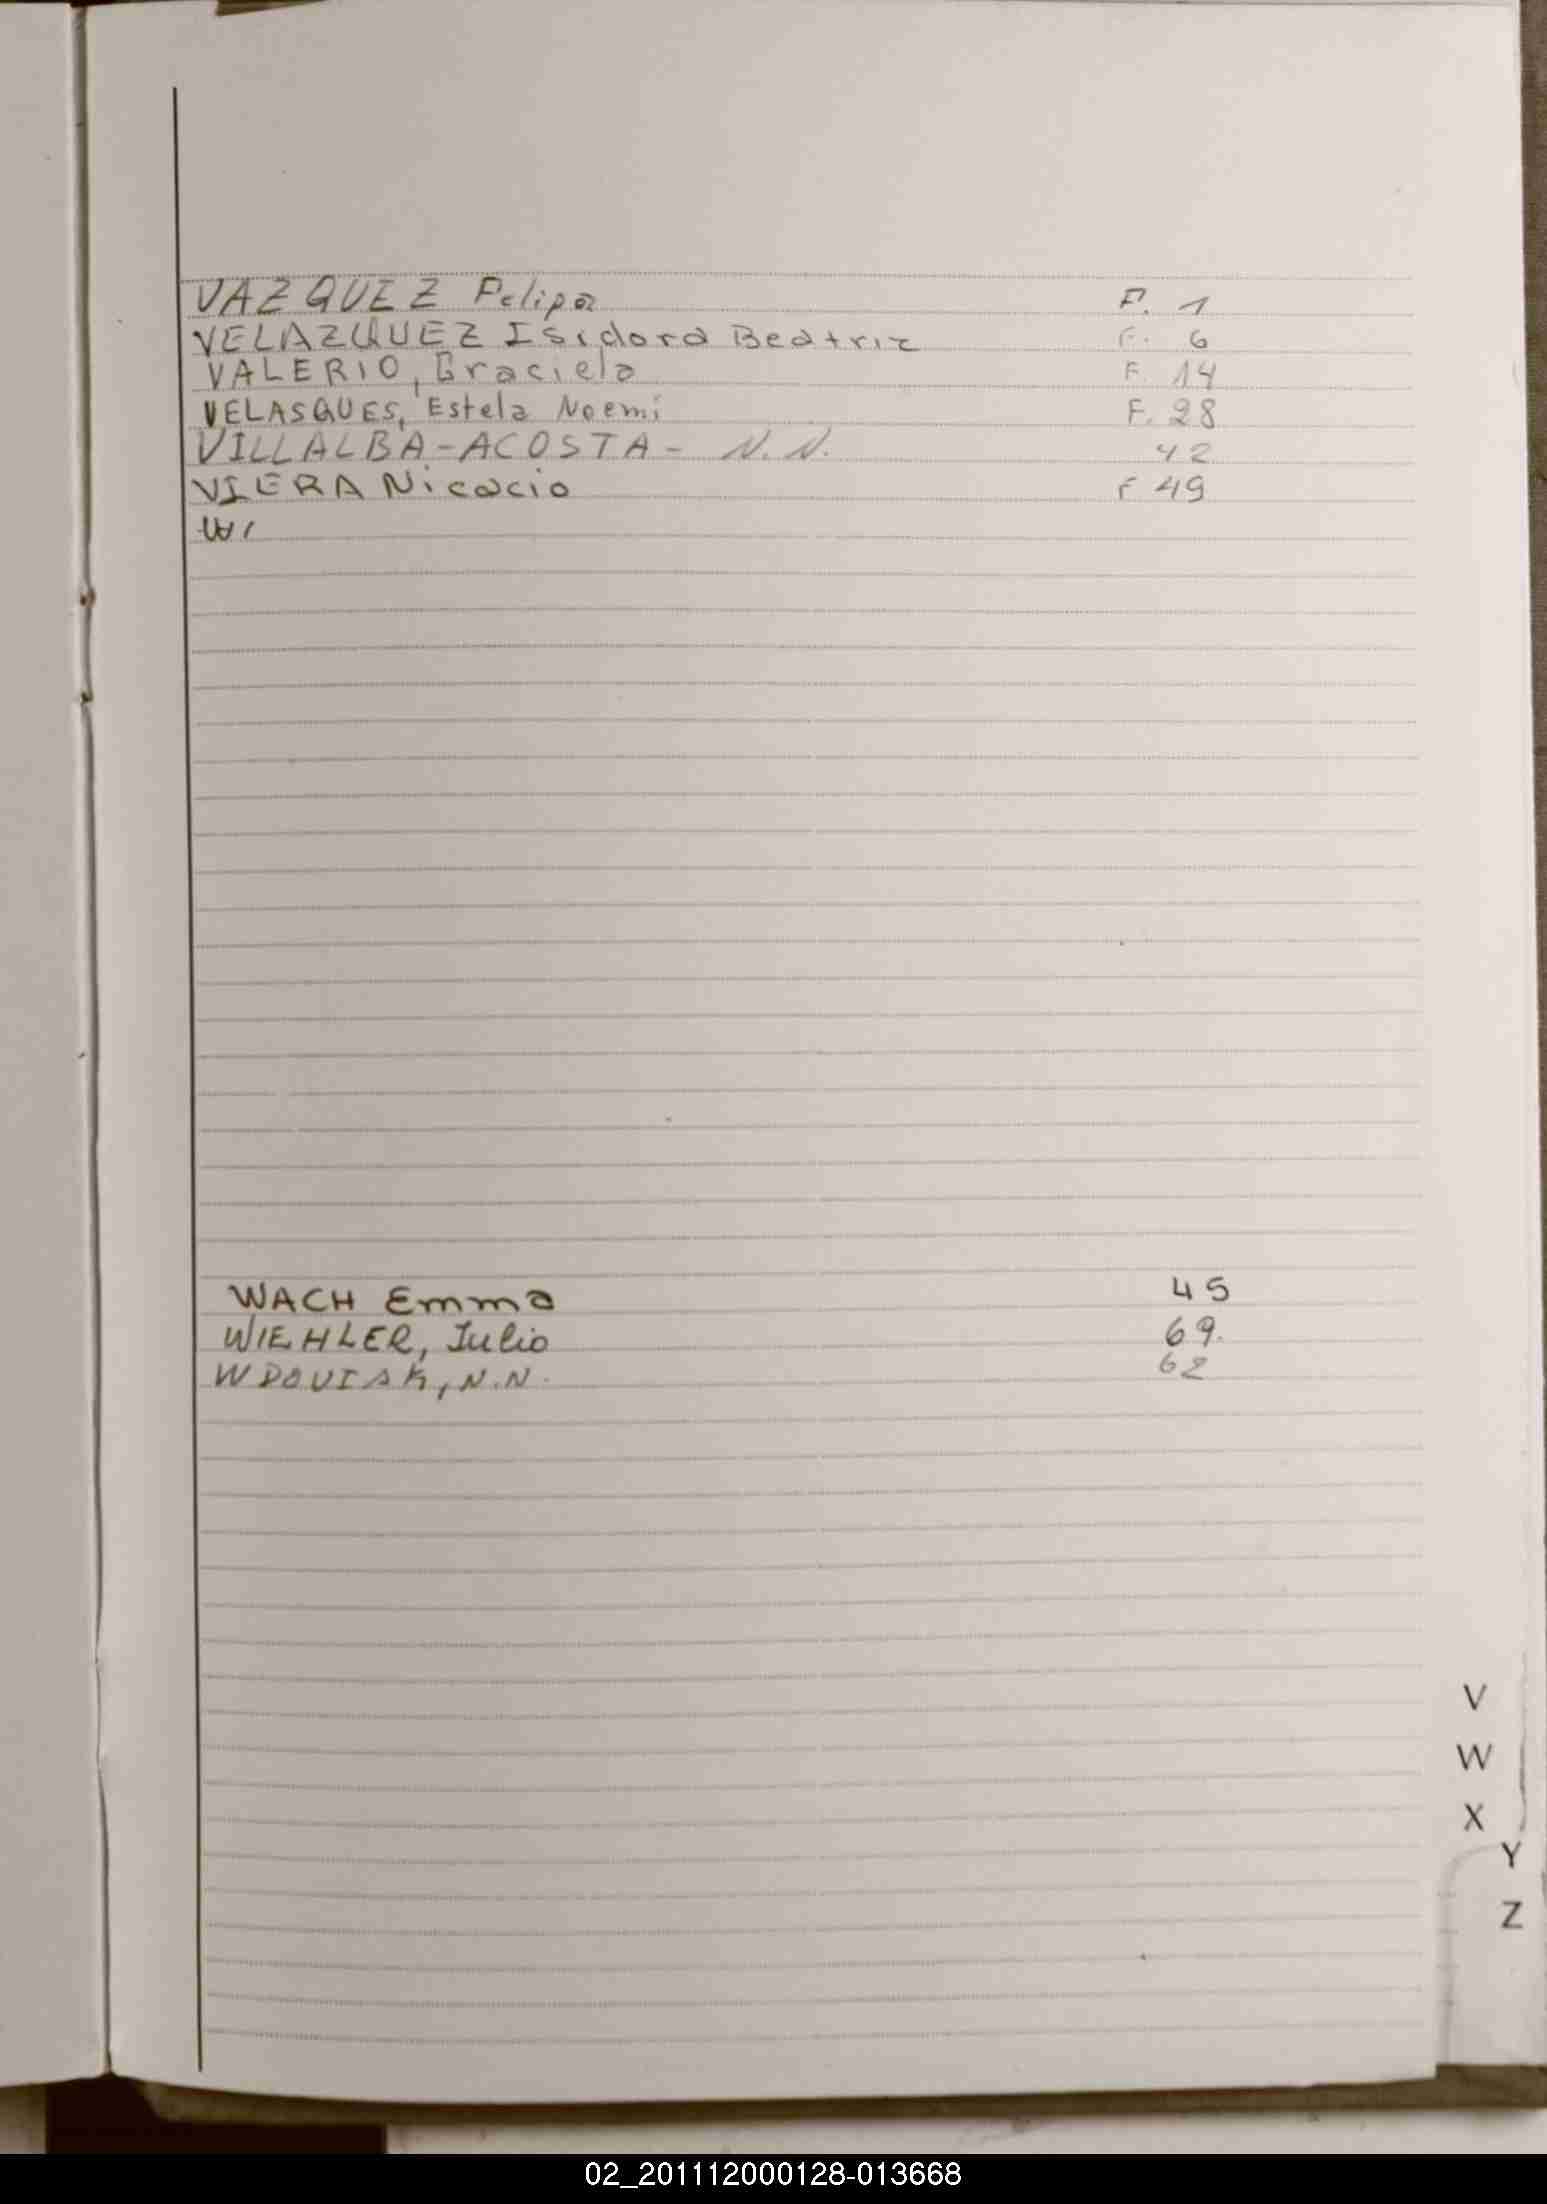 VAZQUEZ Felipa F. 1
VELAZQUEZ Isidora Beatriz F. 6
VALERIO, Graciela F. 14
VELASQUES, Estela Noemi F. 28
VILLALBA-ACOSTA- N.N. 42
VIERA Nicacio F 49
WACH Emma 45
WIEHLER, Julio 69.
WDOUIAK, N.N. 62
V
W
X
Y
Z
02_201112000128-013668